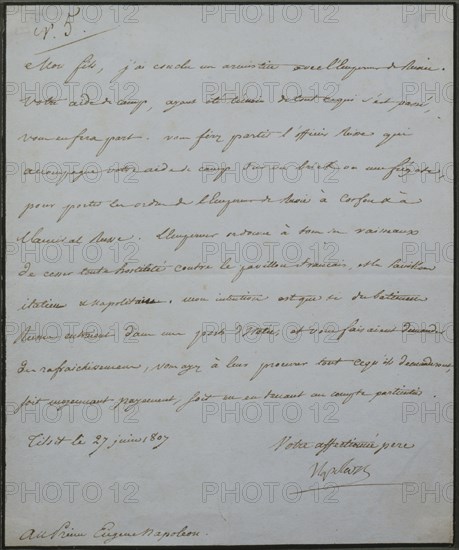 N. 5.
Mon fils, j'ai conclu un armistice avec l'Empereur de Russie.
Votre aide de camp, ayant été témoin de tout ce qui s'est passé,
vous en fera part. vous ferez partir l'officier Russe qui
accompagne votre aide de camp sur un brick ou une frégate,
pour porter les ordres de l'Empereur de Russie à Corfou & à
l'amiral Russe. L'Empereur ordonne à tous ses vaisseaux
de cesser toute hostilité contre le pavillon français, et le pavillon
italien & napolitain. mon intention est que si des bâtimens
Russes entraient dans une port d'Istrie, et vous faisaient demander
des rafraichissemens, vous ayez à leur procurer tout ce qu'ils demanderont,
soit moyennant payement, soit en en tenant un compte particulier.
Tilsit le 27 juin 1807
Votre affectionné père
Napoleon
Au Prince Eugène Napoleon.
PHOTO12